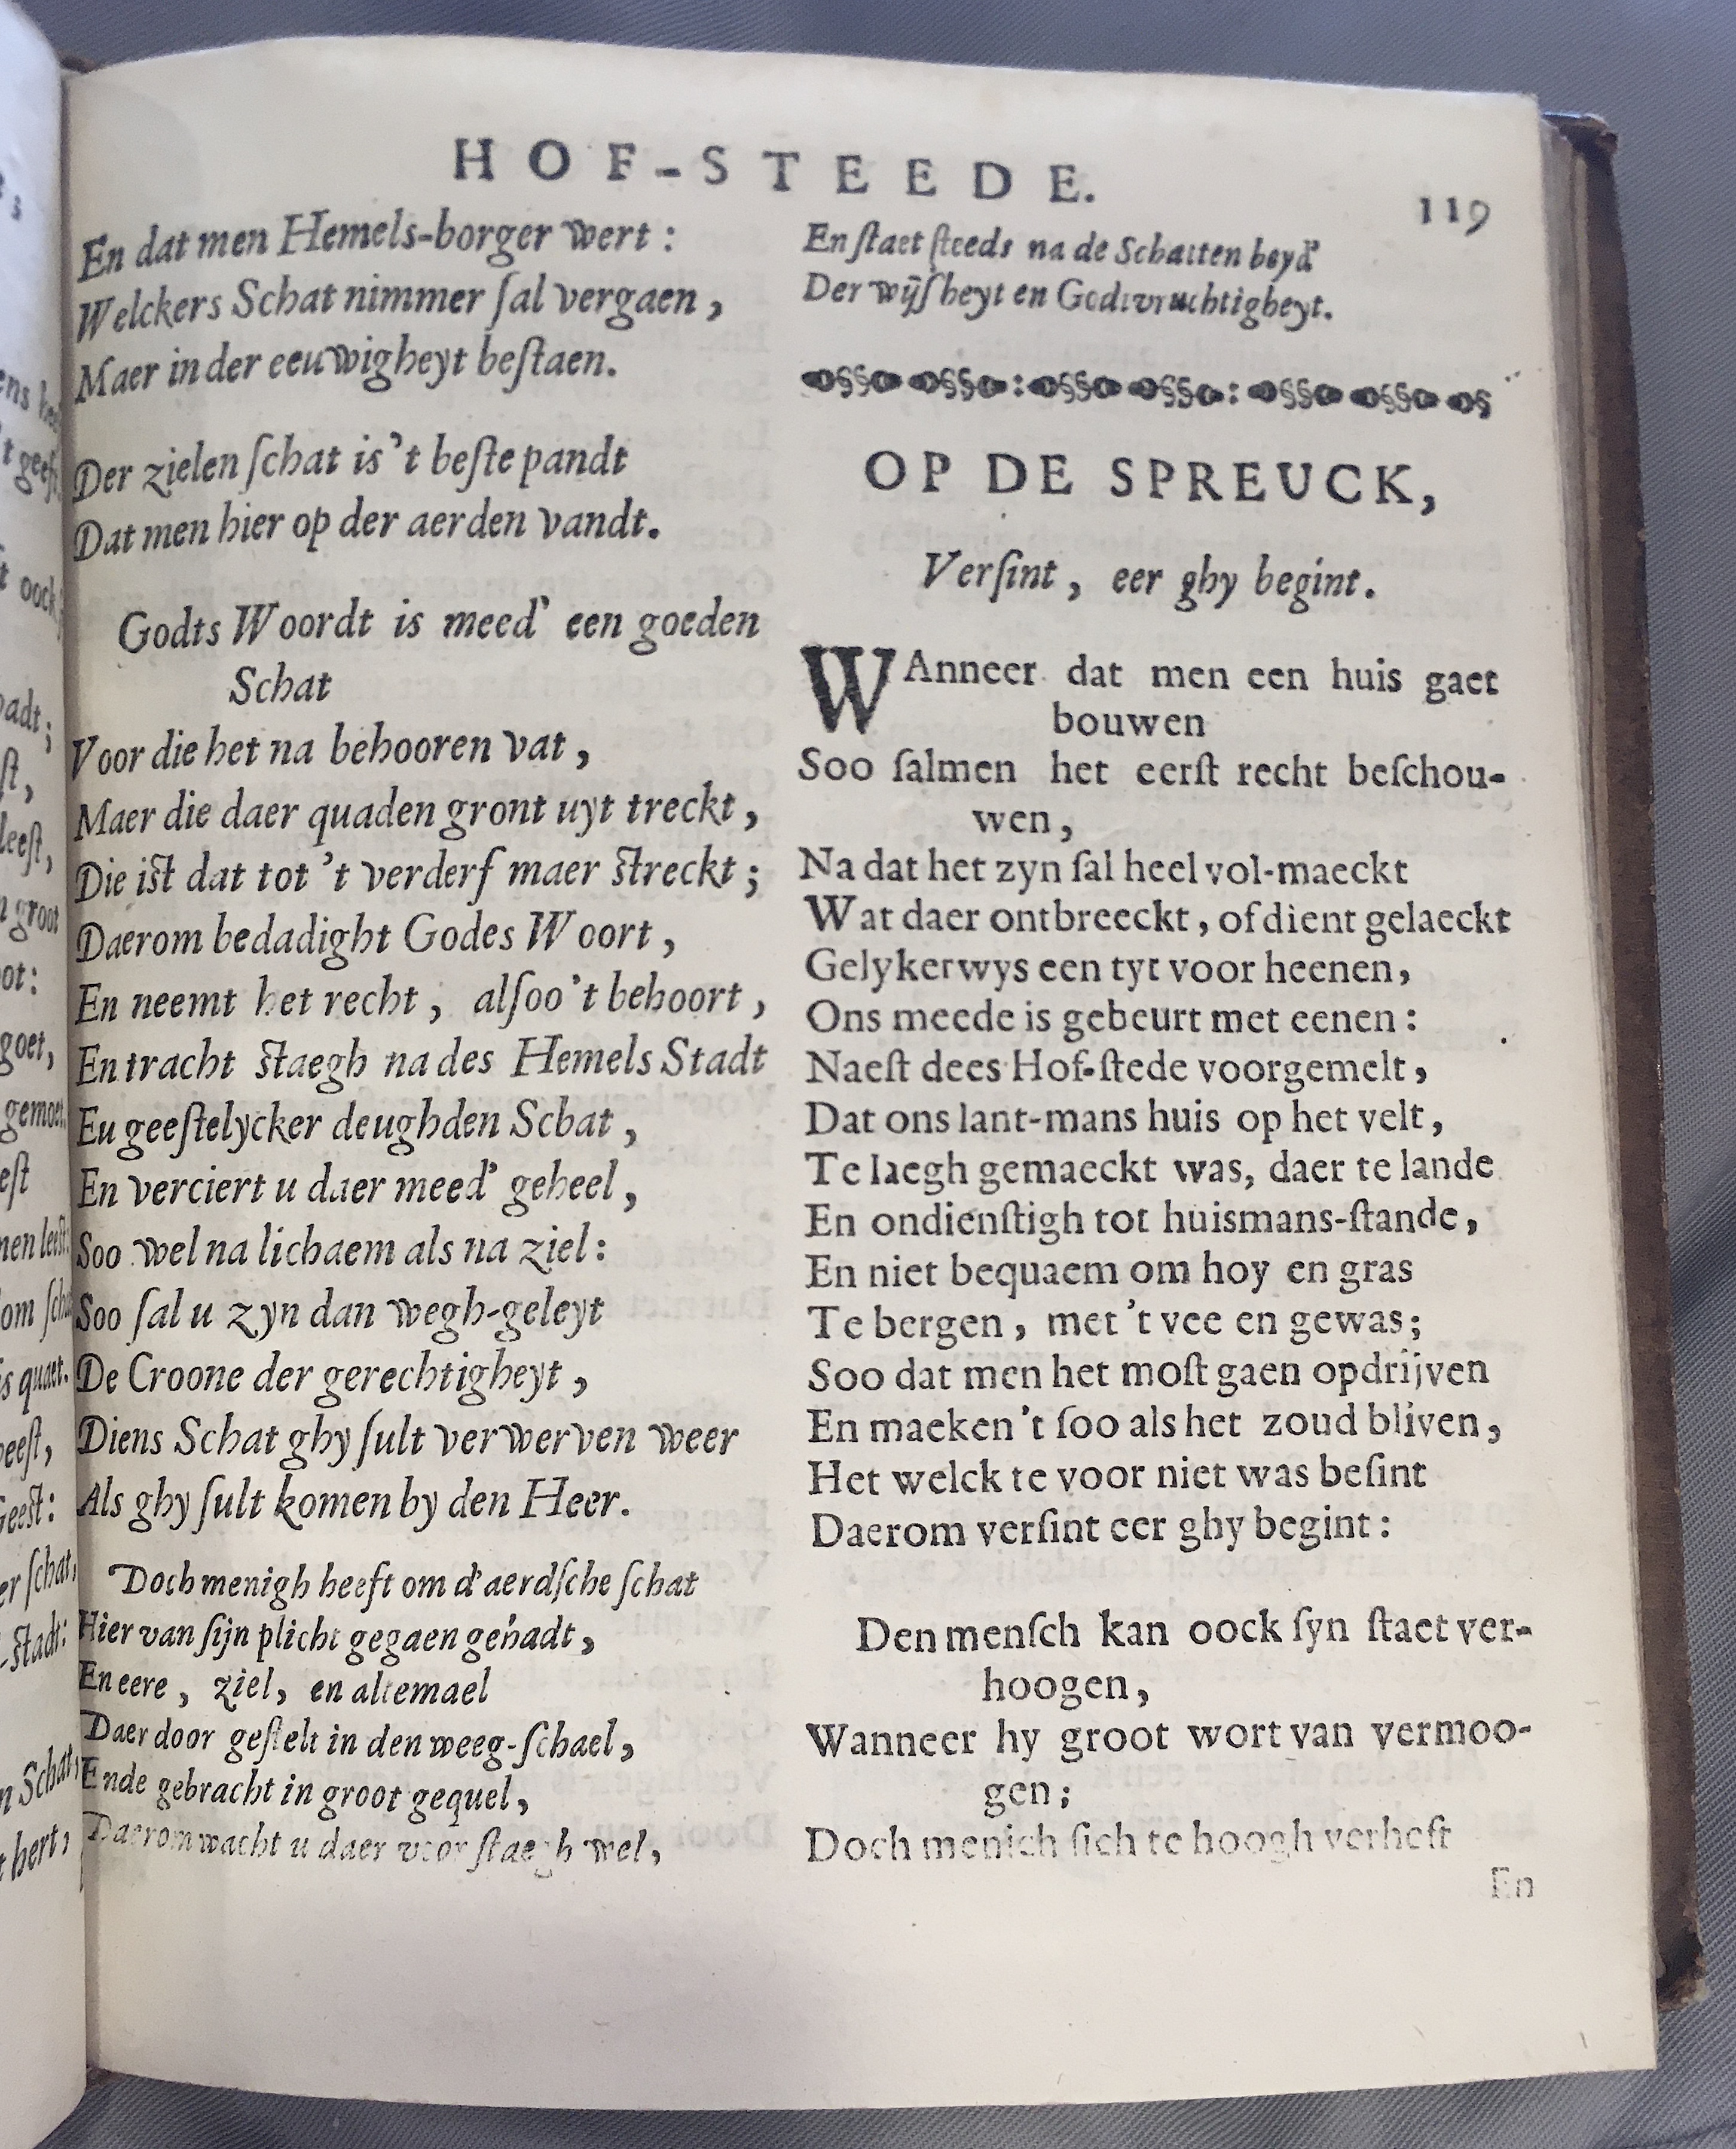 HOF-STEEDE.
119
En dat men Hemels-borger wert :
Welckers Schat nimmer ſal vergaen ,
Maer in der eeuwigheyt beſtaen.
Der zielen ſchat is 't beſte pandt
Dat men hier op der aerden vandt.
Godts Woordt is meed' een goeden
Schat
Voor die het na behooren vat ,
Maer die daer quaden gront uyt treckt ,
Die iſt dat tot 't verderf maer ſtreckt ;
Daerom bedadight Godes Woort ,
En neemt het recht , alſoo 't behoort ,
En tracht ſtaegh na des Hemels Stadt
Eu geeſtelycker deughden Schat ,
En verciert u daer meed' geheel ,
Soo wel na lichaem als na ziel :
Soo ſal u zyn dan wegh-geleyt
De Croone der gerechtigheyt ,
Diens Schat ghy ſult verwerven weer
Als ghy ſult komen by den Heer.
Doch menigh heeft om d'aerdſche ſchat
Hier van ſijn plicht gegaen gehadt ,
En eere , ziel, en altemael
Daer door geſtelt in den weeg-ſchael ,
Ende gebracht in groot gequel ,
Daerom wacht u daer voor ſtaegh wel ,
En ſtaet ſteeds na de Schatten beyd'
Der wijſheyt en Godtvruchtigheyt.
OP DE SPREUCK,
Verſint , eer ghy begint.
WAnneer dat men een huis gaet
bouwen
Soo ſalmen het eerſt recht beſchou-
wen ,
Na dat het zyn ſal heel vol-maeckt
Wat daer ontbreeckt , of dient gelaeckt
Gelykerwys een tyt voor heenen ,
Ons meede is gebeurt met eenen :
Naeſt dees Hof-ſtede voorgemelt ,
Dat ons lant-mans huis op het velt ,
Te laegh gemaeckt was, daer te lande
En ondienſtigh tot huismans-ſtande ,
En niet bequaem om hoy en gras
Te bergen , met 't vee en gewas ;
Soo dat men het moſt gaen opdrijven
En maeken 't ſoo als het zoud bliven ,
Het welck te voor niet was beſint
Daerom verſint eer ghy begint :
Den menſch kan oock ſyn ſtaet ver-
hoogen ,
Wanneer hy groot wort van vermoo-
gen ;
Doch menich ſich te hoogh verheft
En